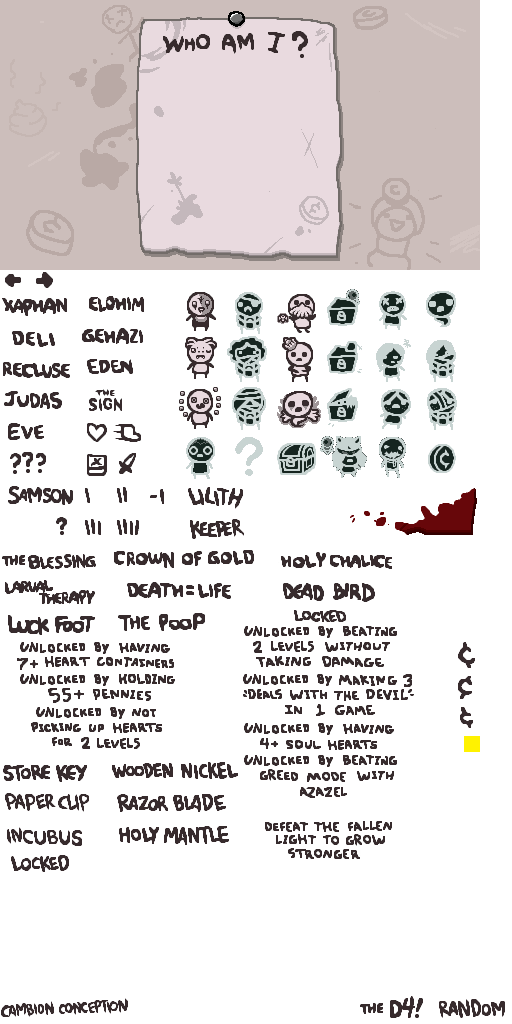 WHO AM I?
XAPHAN ELOHIM
DELI GEHAZI
RECLUSE EDEN
JUDAS THE SIGN
EVE
???
SAMSON I II -I LILITH
? III IIII KEEPER
THE BLESSING CROWN OF GOLD HOLY CHALICE
LARVAL THERAPY DEATH=LIFE DEAD BIRD
LUCK FOOT THE POOP LOCKED
UNLOCKED BY HAVING
7+ HEART CONTAINERS
UNLOCKED BY HOLDING
55+ PENNIES
UNLOCKED BY NOT
PICKING UP HEARTS
FOR 2 LEVELS
UNLOCKED BY BEATING
2 LEVELS WITHOUT
TAKING DAMAGE
UNLOCKED BY MAKING 3
"DEALS WITH THE DEVIL"
IN 1 GAME
UNLOCKED BY HAVING
4+ SOUL HEARTS
UNLOCKED BY BEATING
GREED MODE WITH
AZAZEL
¢
¢
¢
STORE KEY WOODEN NICKEL
PAPER CLIP RAZOR BLADE
INCUBUS HOLY MANTLE
LOCKED
DEFEAT THE FALLEN
LIGHT TO GROW
STRONGER
CAMBION CONCEPTION THE D4! RANDOM